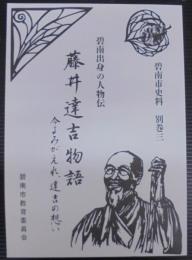 碧南市史料 別巻三
碧南出身の人物伝
藤井達吉物語
今よみがえれ、達吉の想い
碧南市教育委員会